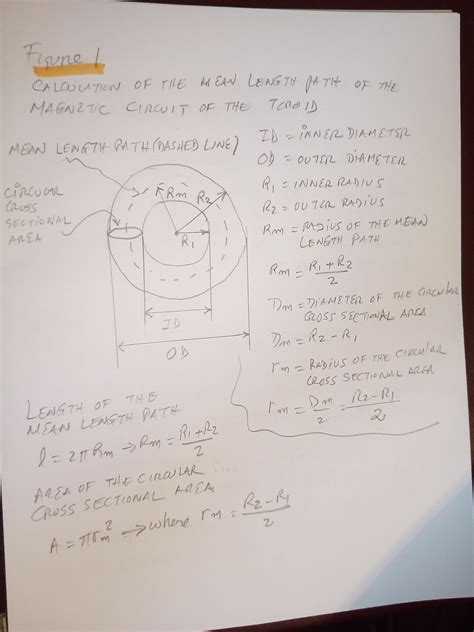 Figure 1
CALCULATION OF THE MEAN LENGTH PATH OF THE
MAGNETIC CIRCUIT OF THE TOROID
MEAN LENGTH PATH (DASHED LINE)
CIRCULAR
CROSS
SECTIONAL
AREA
Rm R2
R1
ID
OD
ID = INNER DIAMETER
OD = OUTER DIAMETER
R1 = INNER RADIUS
R2 = OUTER RADIUS
Rm = RADIUS OF THE MEAN
LENGTH PATH
Rm = R1 + R2 / 2
Dm = DIAMETER OF THE CIRCULAR
CROSS SECTIONAL AREA
Dm = R2 - R1
rm = RADIUS OF THE CIRCULAR
CROSS SECTIONAL AREA
rm = Dm / 2 = R2 - R1 / 2
LENGTH OF THE
MEAN LENGTH PATH
l = 2πRm → Rm = R1 + R2 / 2
AREA OF THE CIRCULAR
CROSS SECTIONAL AREA
A = πrm² → where rm = R2 - R1 / 2